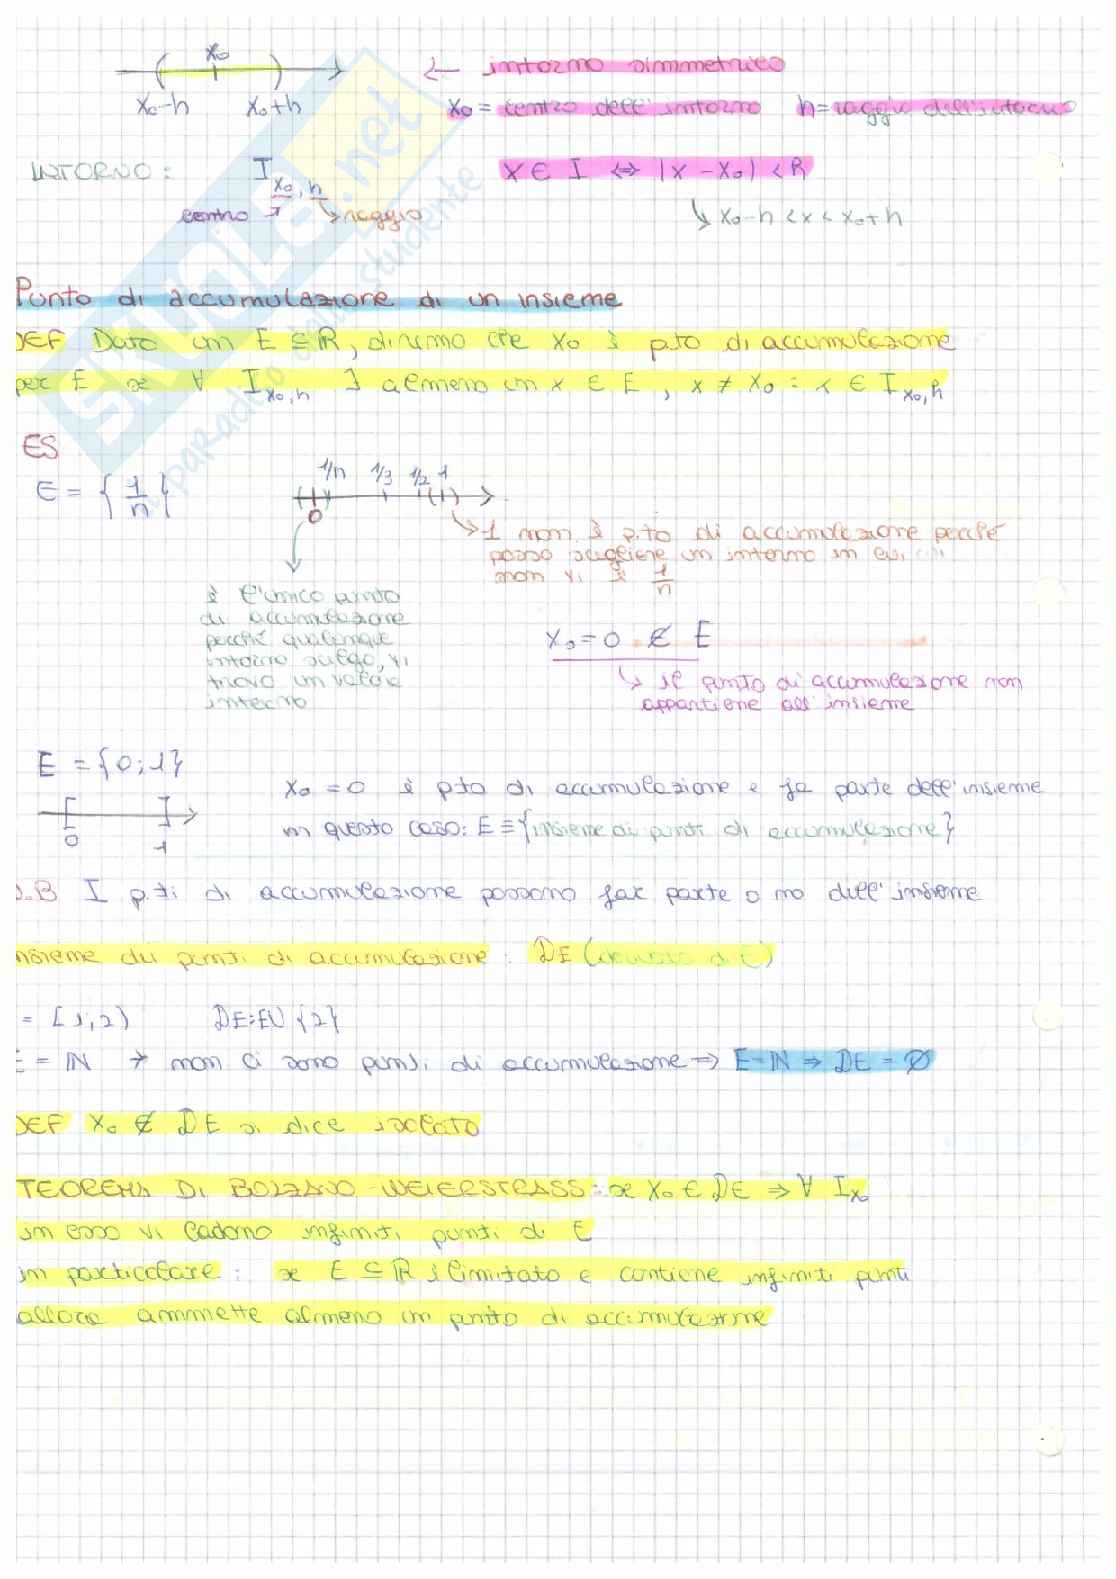 x₀
x₀-h x₀+h
← intorno simmetrico
x₀ = centro dell'intorno h = raggio dell'intorno
INTORNO: I x₀, h
centro raggio
x ∈ I ⇔ |x - x₀| < R
↳ x₀-h < x < x₀+h
Punto di accumulazione di un insieme
DEF Dato un E ⊆ ℝ, diremo che x₀ è p.to di accumulazione
per E se ∀ I x₀,h ∃ almeno un x ∈ E, x ≠ x₀ : x ∈ I x₀,h
ES
E = { 1/n }
1/n 1/3 1/2 1
0
→ 1 non è p.to di accumulazione perché
posso scegliere un intorno in cui
non vi è 1/n
è l'unico punto
di accumulazione
perché qualunque
intorno scelgo, vi
trovo un valore
interno
x₀ = 0 ∉ E
↳ il punto di accumulazione non
appartiene all'insieme
E = {0;1}
0 1
x₀ = 0 è p.to di accumulazione e fa parte dell'insieme
in questo caso: E ≡ {insieme di punti di accumulazione}
N.B I p.ti di accumulazione possono far parte o no dell'insieme
insieme dei punti di accumulazione: DE (derivato di E)
= [1,2) DE=EU{2}
E = ℕ → non ci sono punti di accumulazione ⇒ E=ℕ ⇒ DE = ∅
DEF x₀ ∉ DE si dice isolato
TEOREMA DI BOLZANO-WEIERSTRASS: se x₀ ∈ DE ⇒ ∀ I x₀
in esso vi cadono infiniti punti di E
in particolare: se E ⊆ ℝ è limitato e contiene infiniti punti
allora ammette almeno un punto di accumulazione
SKUOLA.net
il paradiso dello studente